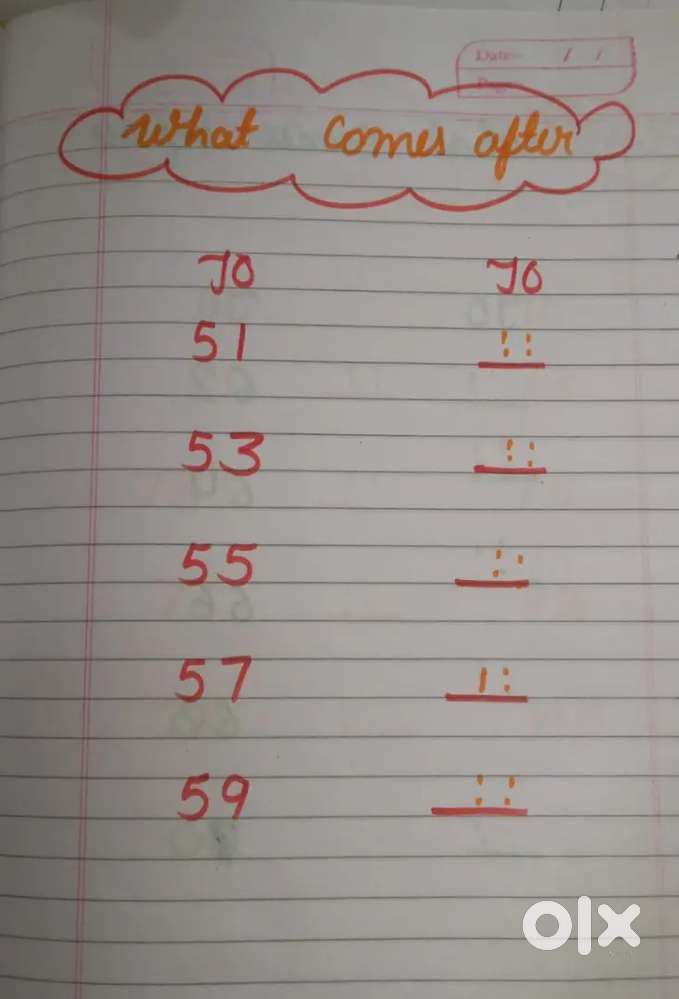 Date / /
What comes after
TO TO
51
53
55
57
59
olx